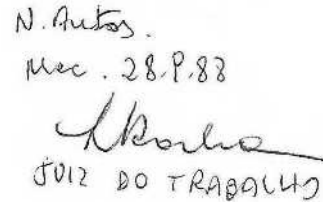 N. Autos.
Mac. 28.9.88
JUIZ DO TRABALHO